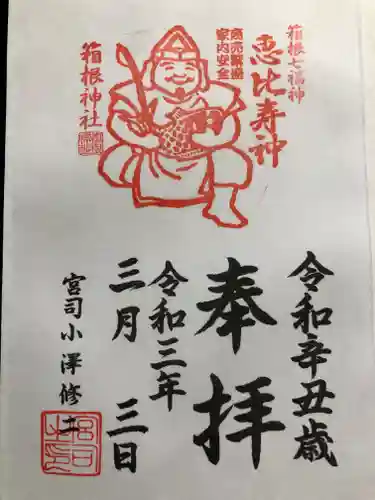 箱根七福神
恵比寿神
商売繁盛
家内安全
箱根神社
令和辛丑歳
奉拝
令和三年
三月三日
宮司小澤修二